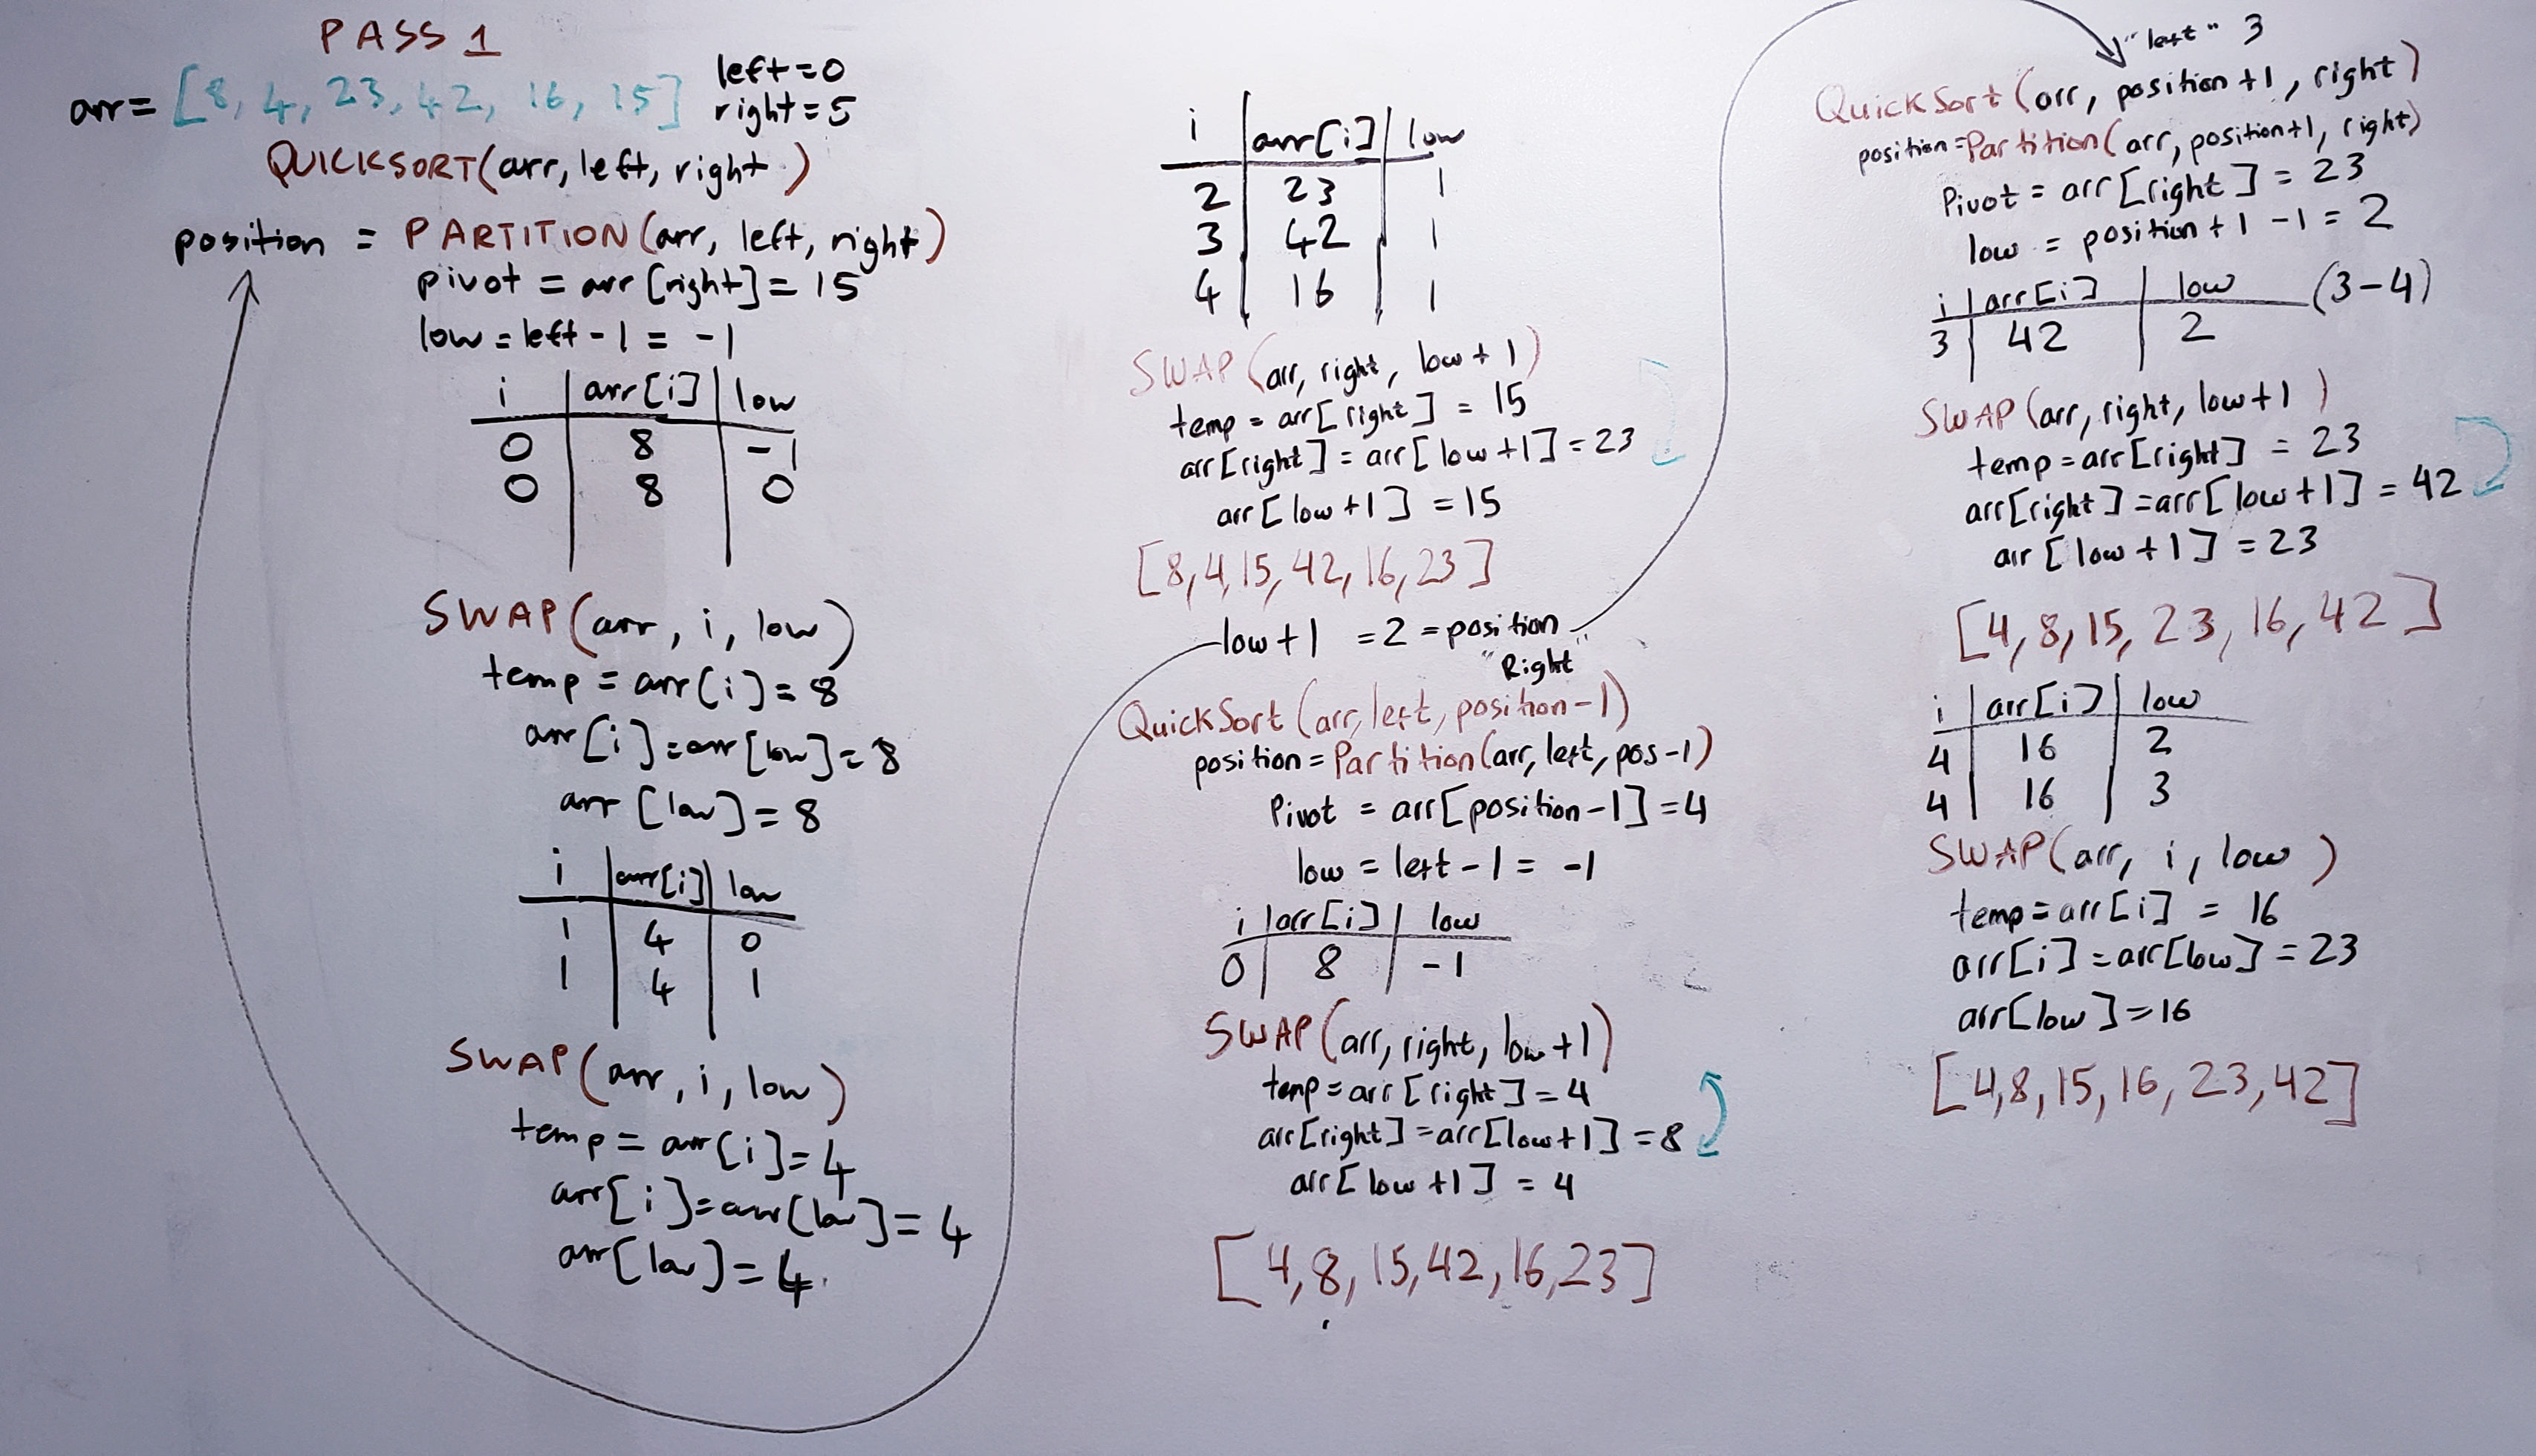 PASS 1
arr = [8, 4, 23, 42, 16, 15]
left = 0
right = 5
QUICKSORT(arr, left, right)
position = PARTITION(arr, left, right)
pivot = arr[right] = 15
low = left - 1 = -1
i | arr[i] | low
0 | 8 | -1
0 | 8 | 0
SWAP(arr, i, low)
temp = arr(i] = 8
arr[i] = arr[low] = 8
arr[low] = 8
i | arr[i] | low
1 | 4 | 0
1 | 4 | 1
SWAP(arr, i, low)
temp = arr[i] = 4
arr[i] = arr[low] = 4
arr[low] = 4
i | arr[i] | low
2 | 23 | 1
3 | 42 | 1
4 | 16 | 1
SWAP(arr, right, low + 1)
temp = arr[right] = 15
arr[right] = arr[low + 1] = 23
arr[low + 1] = 15
[8, 4, 15, 42, 16, 23]
low + 1 = 2 = position
"Right"
QuickSort(arr, left, position - 1)
position = Partition(arr, left, pos - 1)
Pivot = arr[position - 1] = 4
low = left - 1 = -1
i | arr[i] | low
0 | 8 | -1
SWAP(arr, right, low + 1)
temp = arr[right] = 4
arr[right] = arr[low + 1] = 8
arr[low + 1] = 4
[4, 8, 15, 42, 16, 23]
"left" 3
QuickSort(arr, position + 1, right)
position = Partition(arr, position + 1, right)
Pivot = arr[right] = 23
low = position + 1 - 1 = 2
i | arr[i] | low (3-4)
3 | 42 | 2
SWAP(arr, right, low + 1)
temp = arr[right] = 23
arr[right] = arr[low + 1] = 42
arr[low + 1] = 23
[4, 8, 15, 23, 16, 42]
i | arr[i] | low
4 | 16 | 2
4 | 16 | 3
SWAP(arr, i, low)
temp = arr[i] = 16
arr[i] = arr[low] = 23
arr[low] = 16
[4, 8, 15, 16, 23, 42]